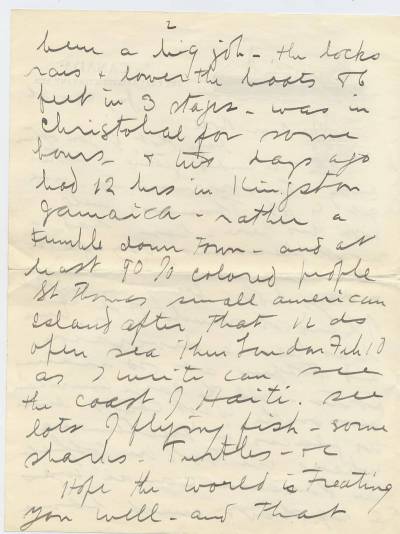 2
been a big job - the locks
rais + lower the boats 86
feet in 3 stages - was in
Christobal for some
hours - + two days ago
had 12 hrs in Kingston
Jamaica - rather a
tumble down town - and at
least 90 % colored people
St Thomas small american
island after that 11 ds
open sea Then London Feb 10
as I write can see
the coast of Haiti. see
lots of flying fish - some
sharks - Turtles - +c
Hope the world is Treating
you well - and that